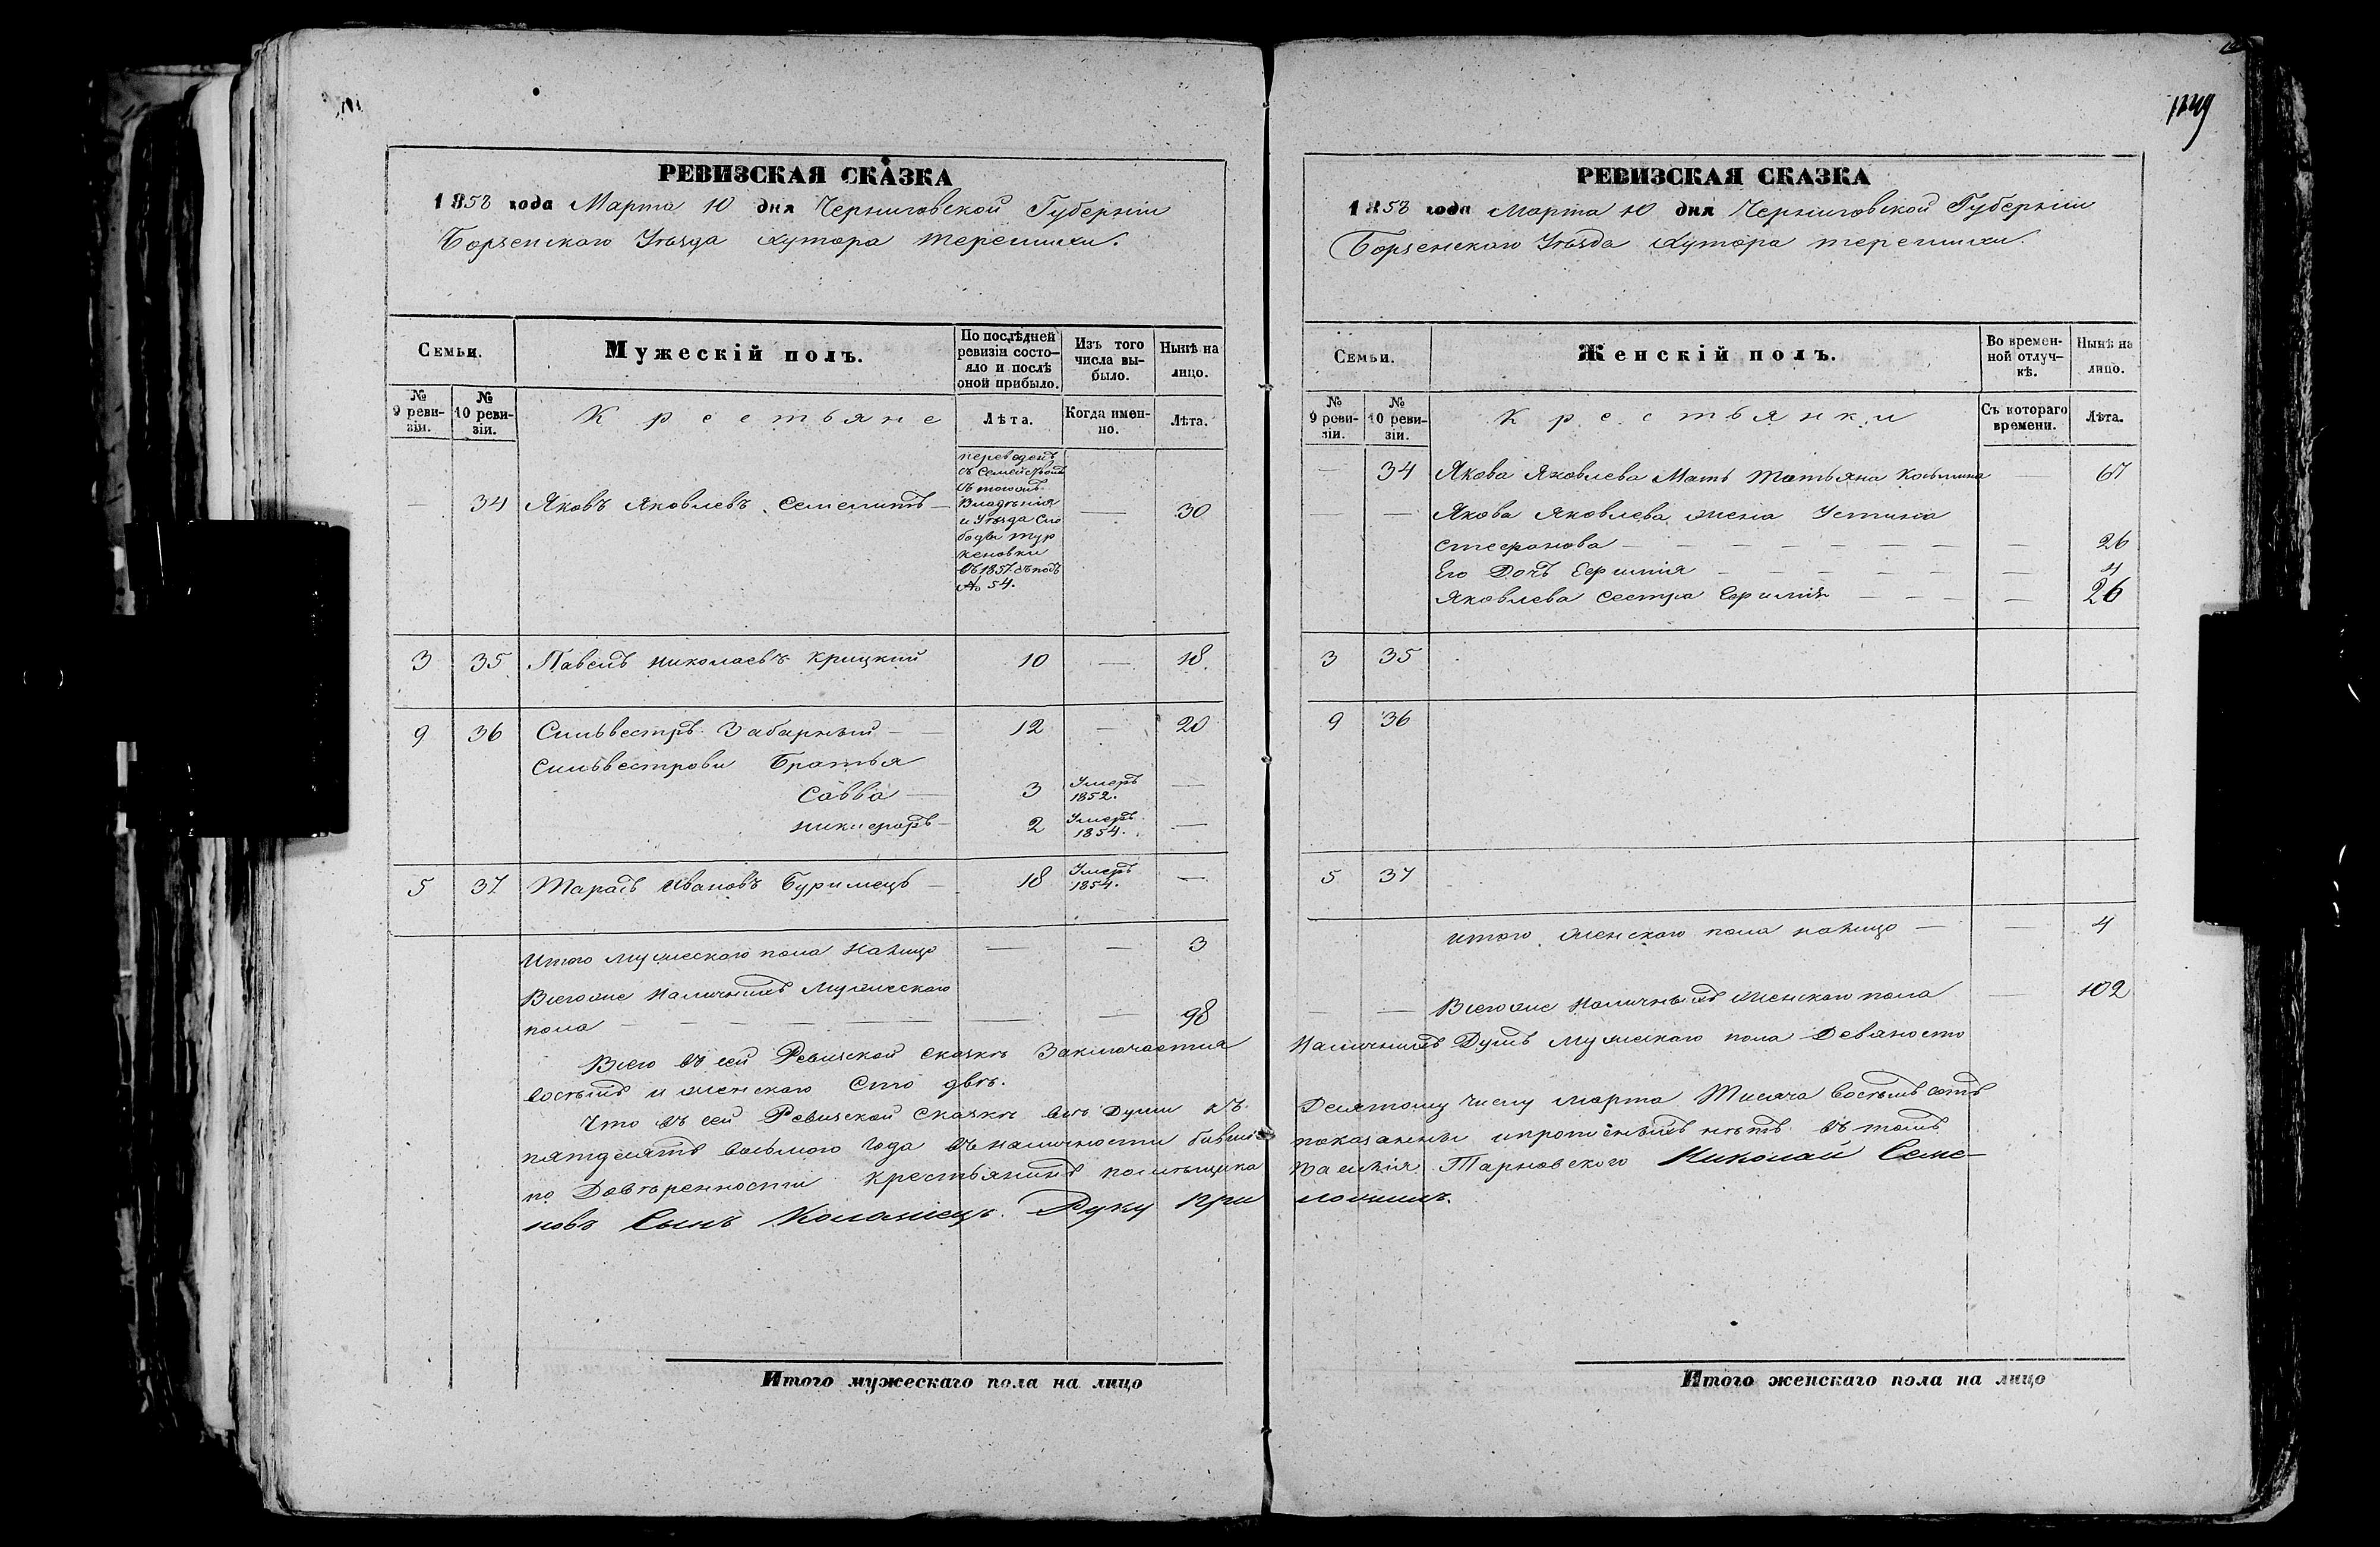 РЕВИЗСКАЯ СКАЗКА
1858 года Марта 10 дня Черниговской Губерніи
Борзенскаго Уѣзда Хутора Терешихи.
Семьи.
Мужескій полъ.
По послѣдней ревизіи состояло и послѣ оной прибыло.
Изъ того числа выбыло.
Нынѣ на лицо.
№ 9 ревизіи.
№ 10 ревизіи.
Крестьяне
Лѣта.
Когда именно.
Лѣта.
— 34 Яковъ Яковлевъ Семенитъ — — 30
переведенъ
съ семействомъ
съ тогожъ
Владѣнія
и Уѣзда Сло
боды Тур
кеновки
въ 1857 съ подъ
№ 54.
3 35 Павелъ Николаевъ Крицкий 10 — 18.
9 36 Сильвестръ Забарный — 12 — 20
Сильвестрови Братья
Савва — 3 Умеръ 1852. —
Никифоръ — 2 Умеръ 1854. —
5 37 Тарасъ Ивановъ Буримецъ — 18 Умеръ 1854. —
Итого мужескаго пола налицо — — 3
Всегоже наличныхъ мужескаго
пола — — — — — — 98
Всего въ сей Ревизской сказкѣ Заключается
восемь и женскаго Сто двѣ.
Что въ сей Ревизской Сказкѣ всѣ души къ
пятдесятъ восьмого года въ наличности бывши
по Довѣренности крестьянинъ помѣщика
новъ Сынъ Коломіецъ. Руку При
Итого мужескаго пола на лицо
1249
РЕВИЗСКАЯ СКАЗКА
1858 года Марта 10 дня Черниговской Губерніи
Борзенскаго Уѣзда Хутора Терешихи.
Семьи.
Женскій полъ.
Во временной отлучкѣ.
Нынѣ на лицо.
№ 9 ревизіи.
№ 10 ревизіи.
Крестьянки
Съ котораго времени.
Лѣта.
— 34 Якова Яковлева Мать Татьяна Косьмина — 67
— — Якова Яковлева жена Устина
Стефанова — — — — — — — 26
Его Дочь Ефимія — — — — — — 4
Яковлева сестра Ефимія — — — — 26
3 35
9 36
5 37
Итого женскаго пола налицо — — 4
— — Всегоже наличныхъ женскаго пола — 102
Наличныхъ Душъ мужескаго пола Девяносто
Десятому числу марта Тысяча восемь сотъ
показанны ипропісныхъ нѣтъ въ томъ
Василія Тарновского Николай Семе-
ложилъ.
Итого женскаго пола на лицо